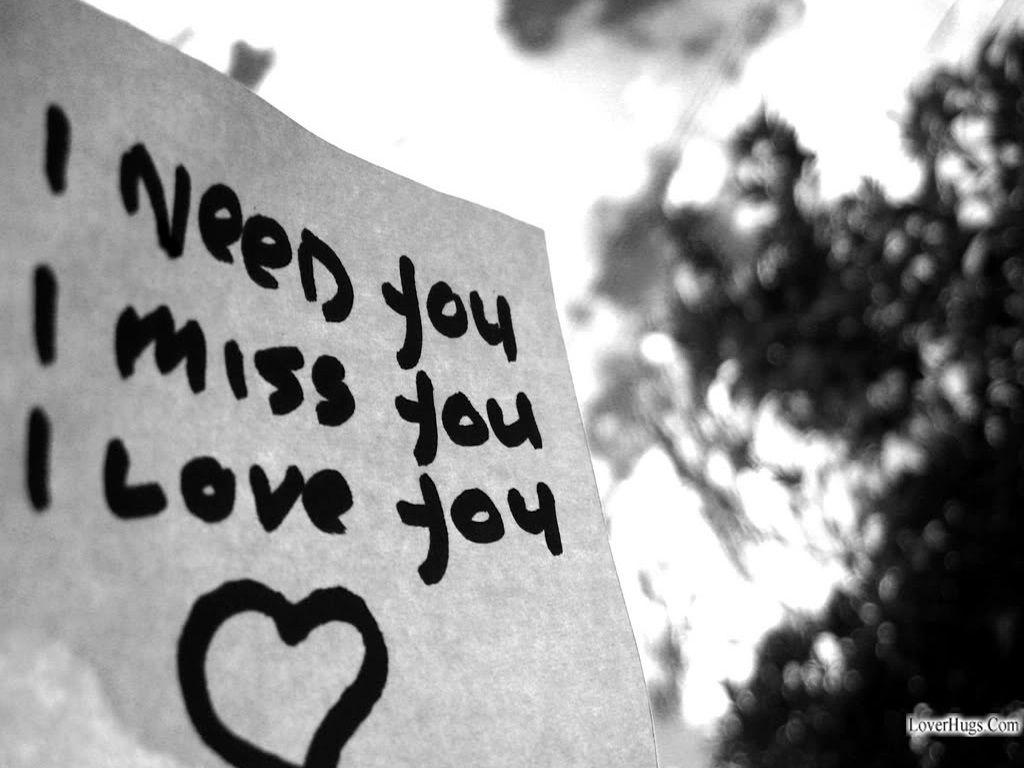 I Need you
I miss you
I Love you
LoverHugs.Com